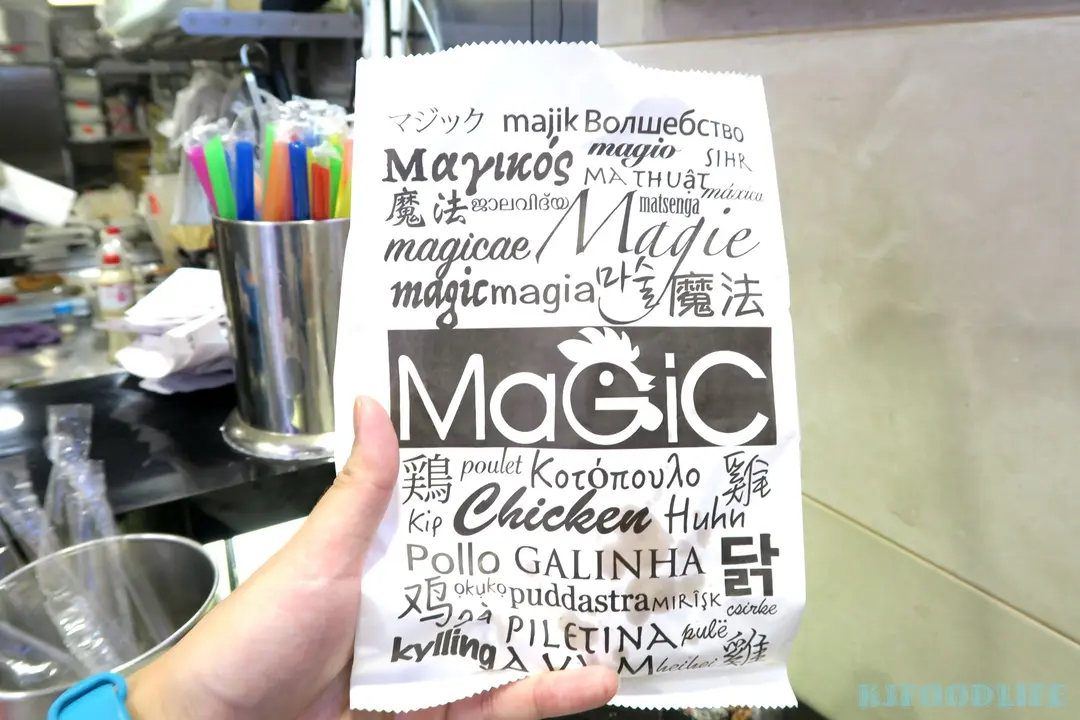 マジック majik Волшебство
Μαγικός magio SIHR
MA THUẬT máxica
魔法 ജാലവിദ്യ Magie matsenga
magicae
magic magia 마술 魔法
MaGiC
鶏 poulet Κοτόπουλο 雞
Kip Chicken Huhn
Pollo GALINHA 닭
鸡 ọkụkọ puddastra MIRÎŞK csirke
gà PILETINA pulë
kylling heihei 雞
KJFOODLIFE